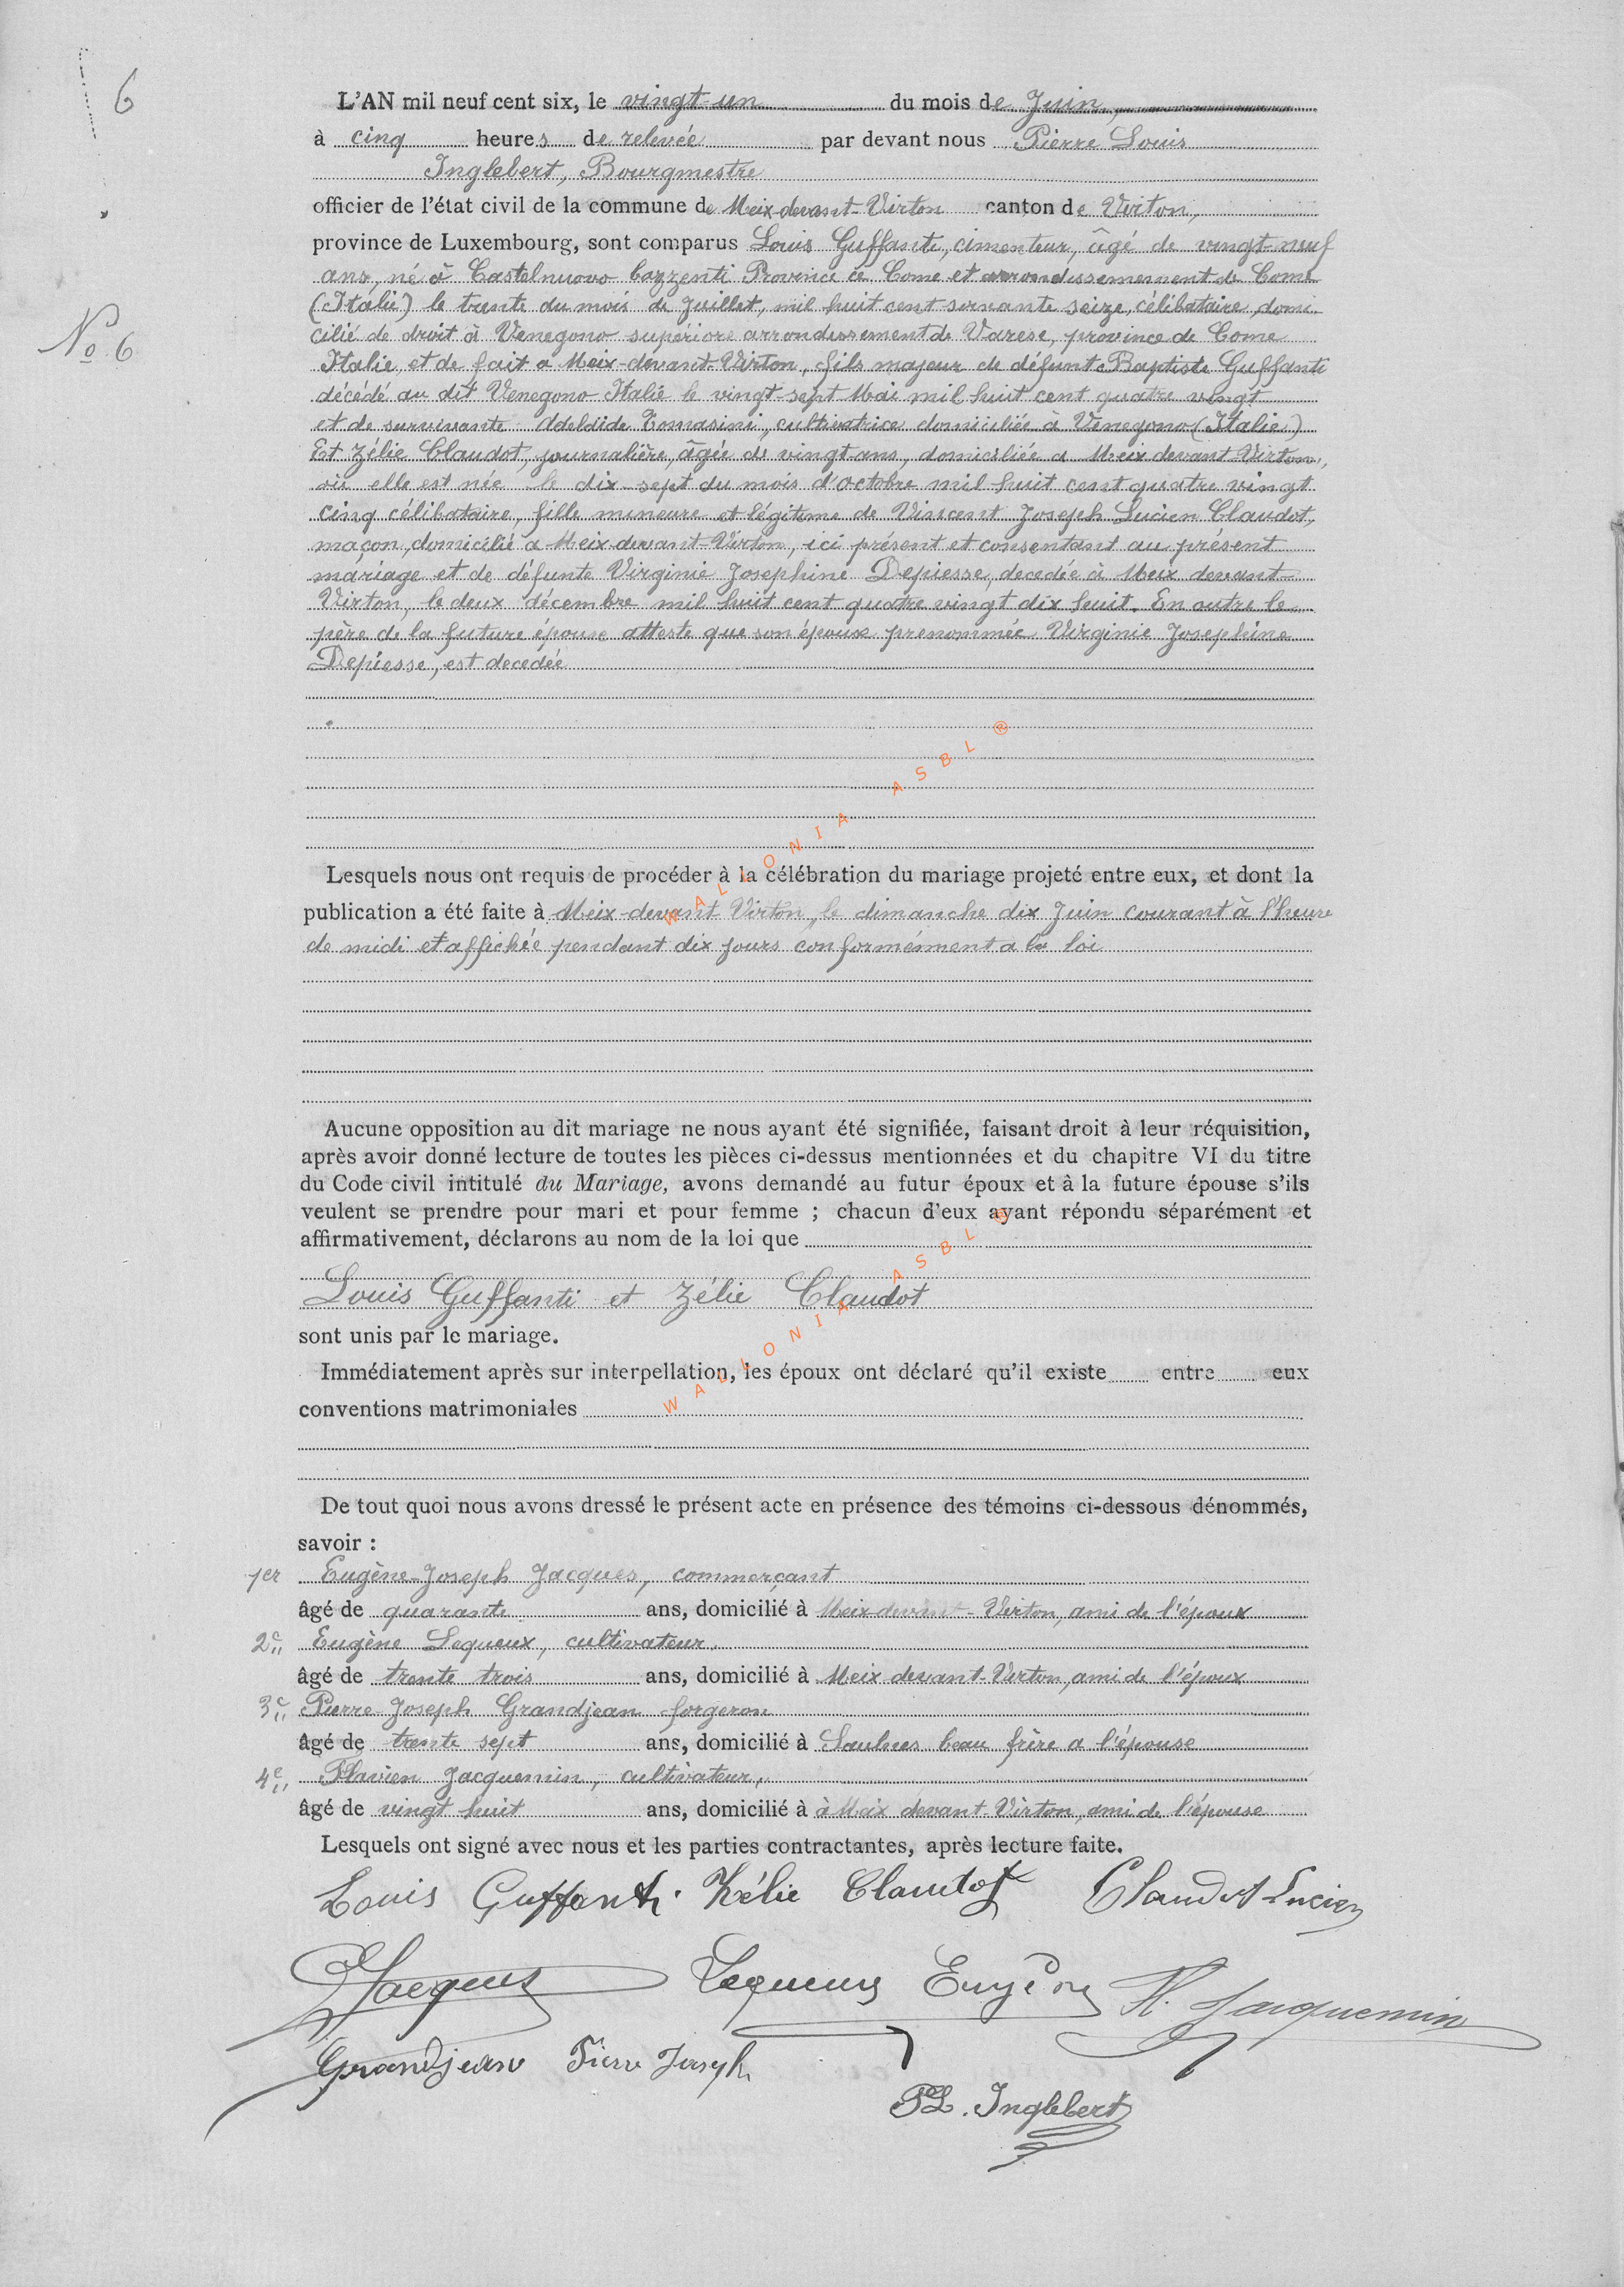 6
L'AN mil neuf cent six, le vingt-un du mois de Juin,
à cinq heures de relevée par devant nous Pierre Louis
Inglebert, Bourgmestre
officier de l'état civil de la commune de Meix-devant-Virton canton de Virton,
province de Luxembourg, sont comparus Louis Guffante, cimenteur, âgé de vingt-neuf
ans, né à Castelnuovo Bozzenti Province de Come et arrondissement de Come
(Italie) le trente du mois de Juillet, mil huit cent soixante seize, célibataire, domi-
N° 6
cilié de droit à Venegono superiore arrondissement de Varese, province de Come
Italie, et de fait a Meix-devant-Virton, fils majeur de défunt Baptiste Guffanti
décédé au dit Venegono Italie le vingt-sept Mai mil huit cent quatre vingt
et de survivante Adelaïde Tomasini, cultivatrice domiciliée à Venegono (Italie)
Et Zélie Claudot, journalière, âgée de vingt ans, domiciliée a Meix devant-Virton,
où elle est née le dix-sept du mois d'octobre mil huit cent quatre vingt
cinq célibataire, fille mineure et légitime de Vincent Joseph Lucien Claudot,
maçon, domicilié a Meix-devant-Virton, ici présent et consentant au présent
mariage et de défunte Virginie Josephine Depiesse, decedée à Meix devant
Virton, le deux décembre mil huit cent quatre vingt dix huit. En outre le
père de la future épouse atteste que son épouse prenommée Virginie Josephine
Depiesse, est decedée
Lesquels nous ont requis de procéder à la célébration du mariage projeté entre eux, et dont la
publication a été faite à Meix-devant Virton, le dimanche dix Juin courant à l'heure
de midi et affichée pendant dix jours conformément a la loi
WALLONIA ASBL ®
Aucune opposition au dit mariage ne nous ayant été signifiée, faisant droit à leur réquisition,
après avoir donné lecture de toutes les pièces ci-dessus mentionnées et du chapitre VI du titre
du Code civil intitulé du Mariage, avons demandé au futur époux et à la future épouse s'ils
veulent se prendre pour mari et pour femme ; chacun d'eux ayant répondu séparément et
affirmativement, déclarons au nom de la loi que
Louis Guffanti et Zélie Claudot
sont unis par le mariage.
Immédiatement après sur interpellation, les époux ont déclaré qu'il existe entre eux
conventions matrimoniales
WALLONIA ASBL ®
De tout quoi nous avons dressé le présent acte en présence des témoins ci-dessous dénommés,
savoir :
1er Eugène-Joseph Jacques, commerçant
âgé de quarante ans, domicilié à Meix-devant-Virton, ami de l'époux
2e Eugène Lequeux, cultivateur.
âgé de trente trois ans, domicilié à Meix-devant-Virton, ami de l'époux
3e Pierre-Joseph Grandjean forgeron
âgé de trente sept ans, domicilié à Saulnes beau frère a l'épouse
4e Flavien Jacquemin, cultivateur,
âgé de vingt huit ans, domicilié à à Meix devant-Virton, ami de l'épouse
Lesquels ont signé avec nous et les parties contractantes, après lecture faite.
Louis Guffanti. Zélie Claudot Claudot Lucien
Jacques Lequeux Eugène Fl. Jacquemin
Grandjean Pierre Joseph
PL. Inglebert